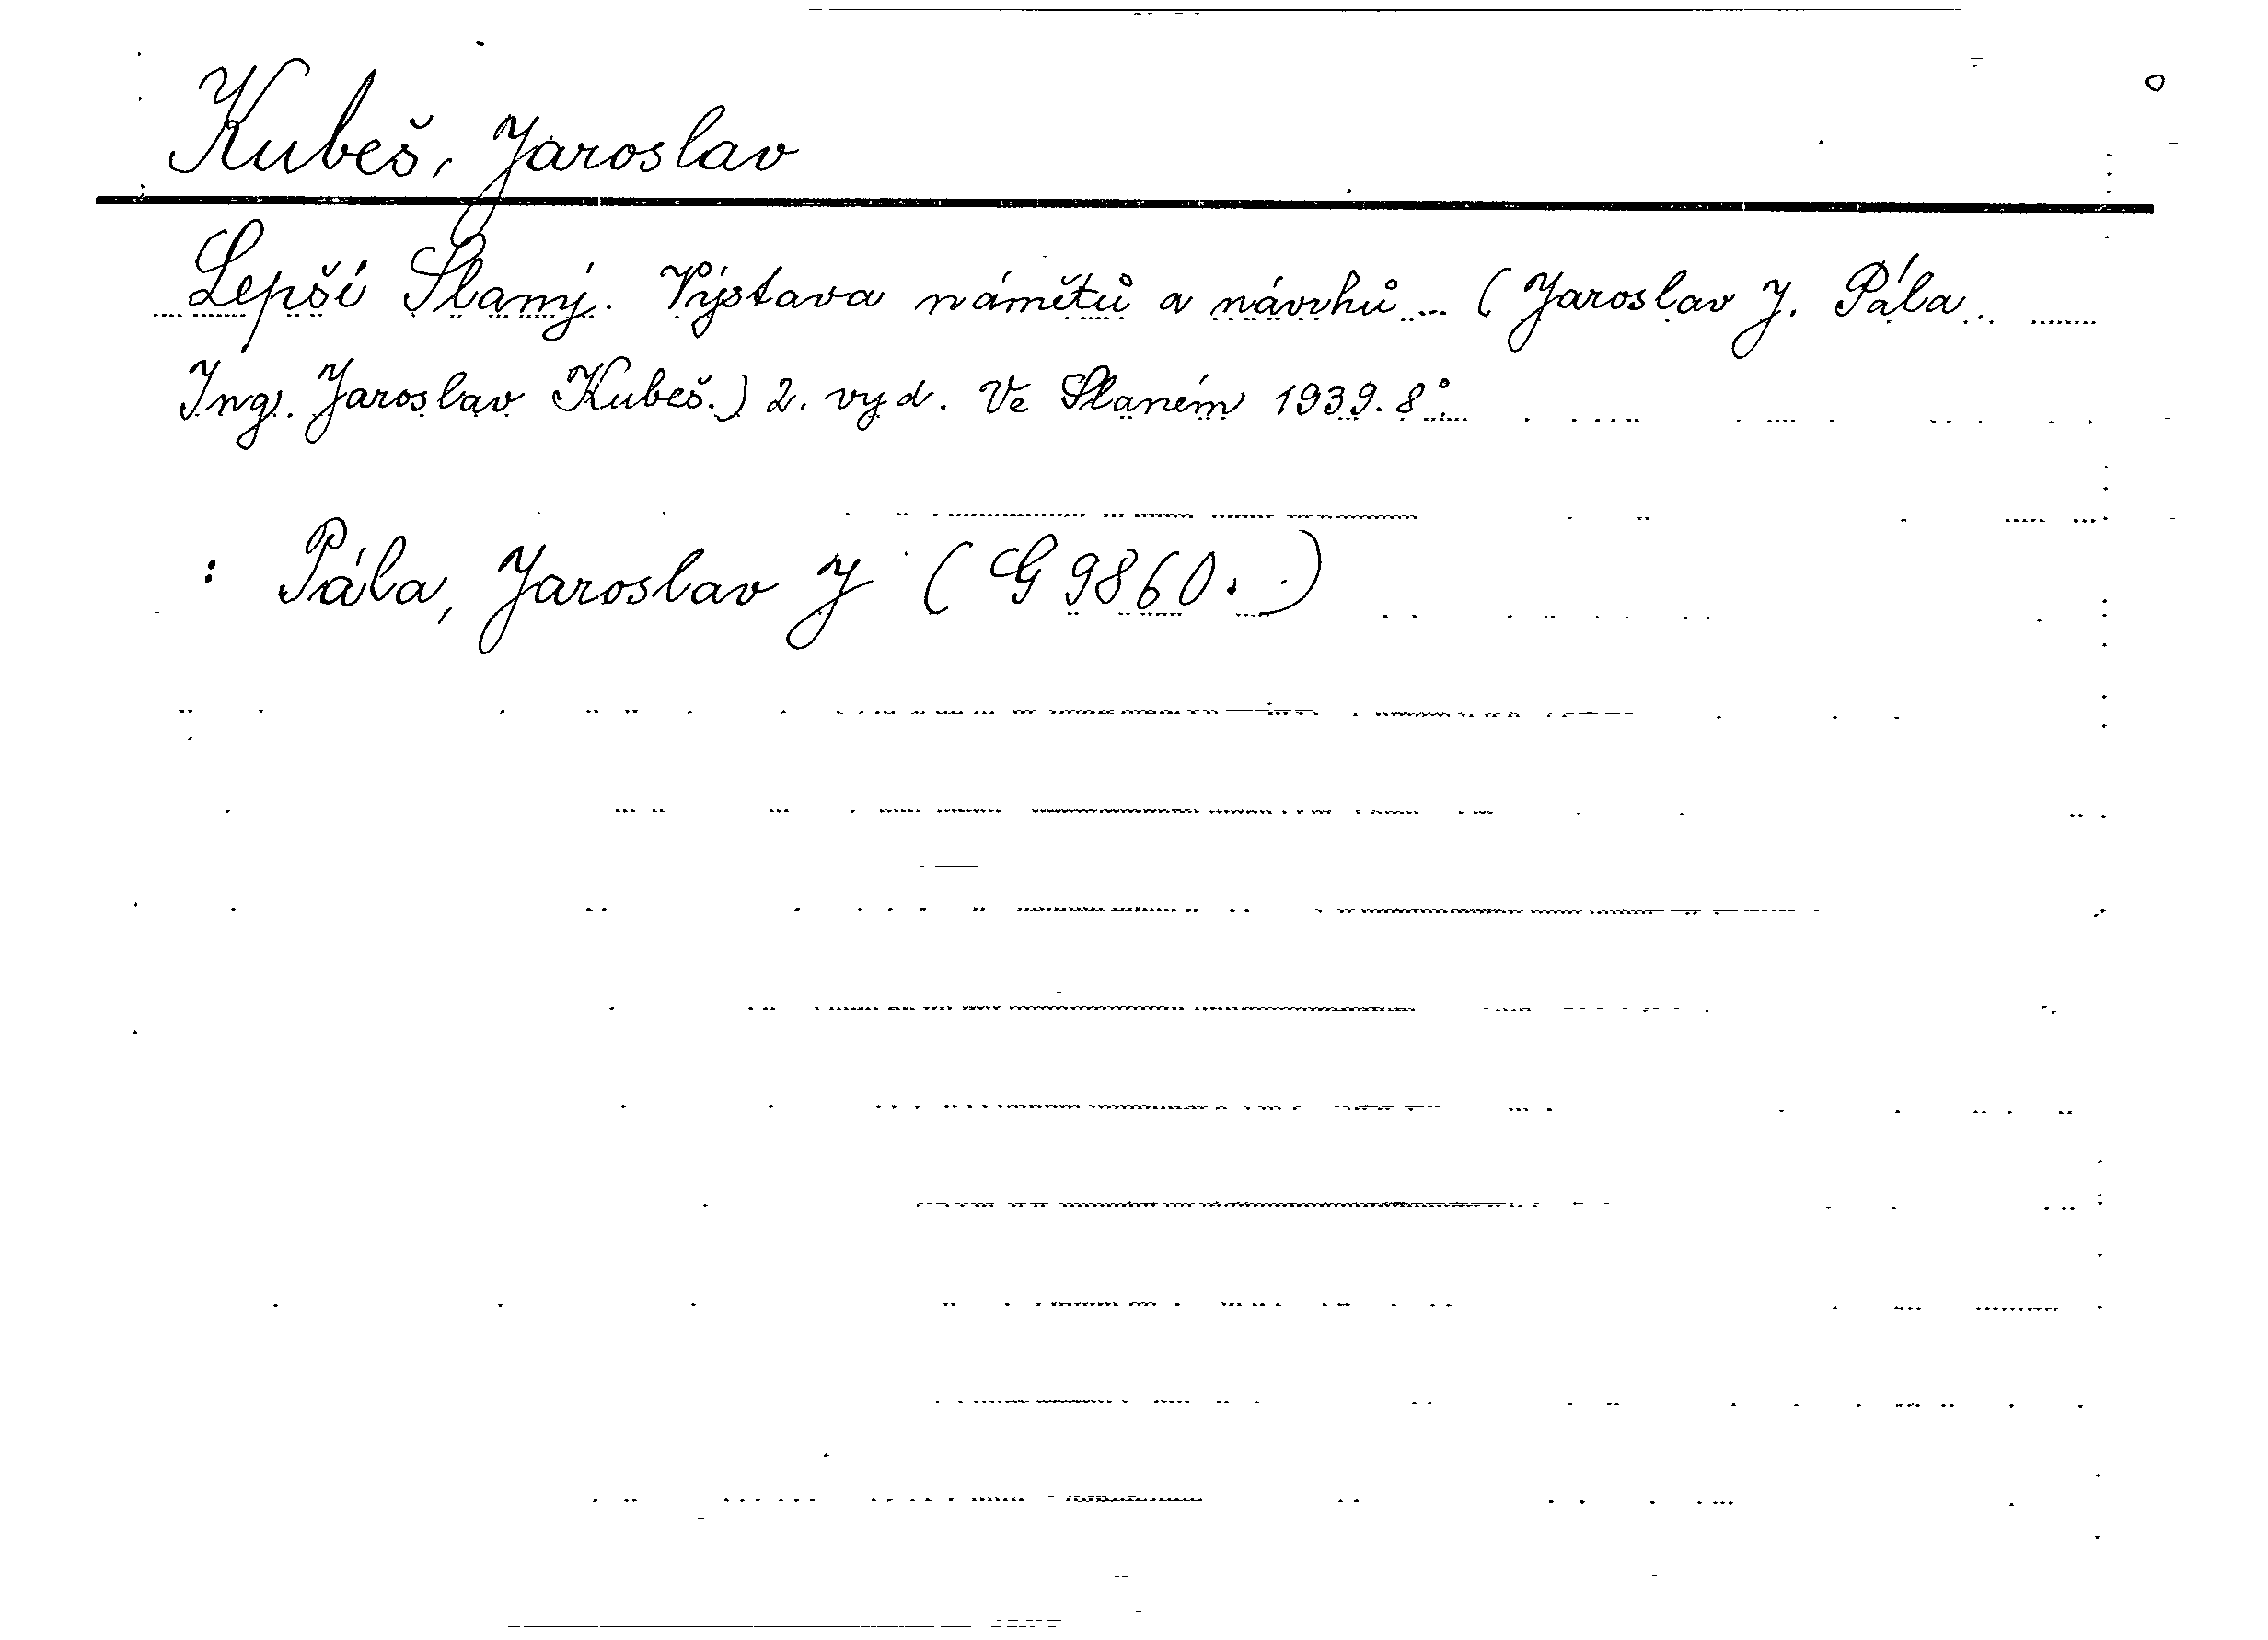 Kubeš, Jaroslav
Lepší Slaný. Výstava námětů a návrhů... (Jaroslav J. Pála..
Ing. Jaroslav Kubeš.) 2. vyd. Ve Slaném 1939. 8°.
: Pála, Jaroslav J (G 9860..)